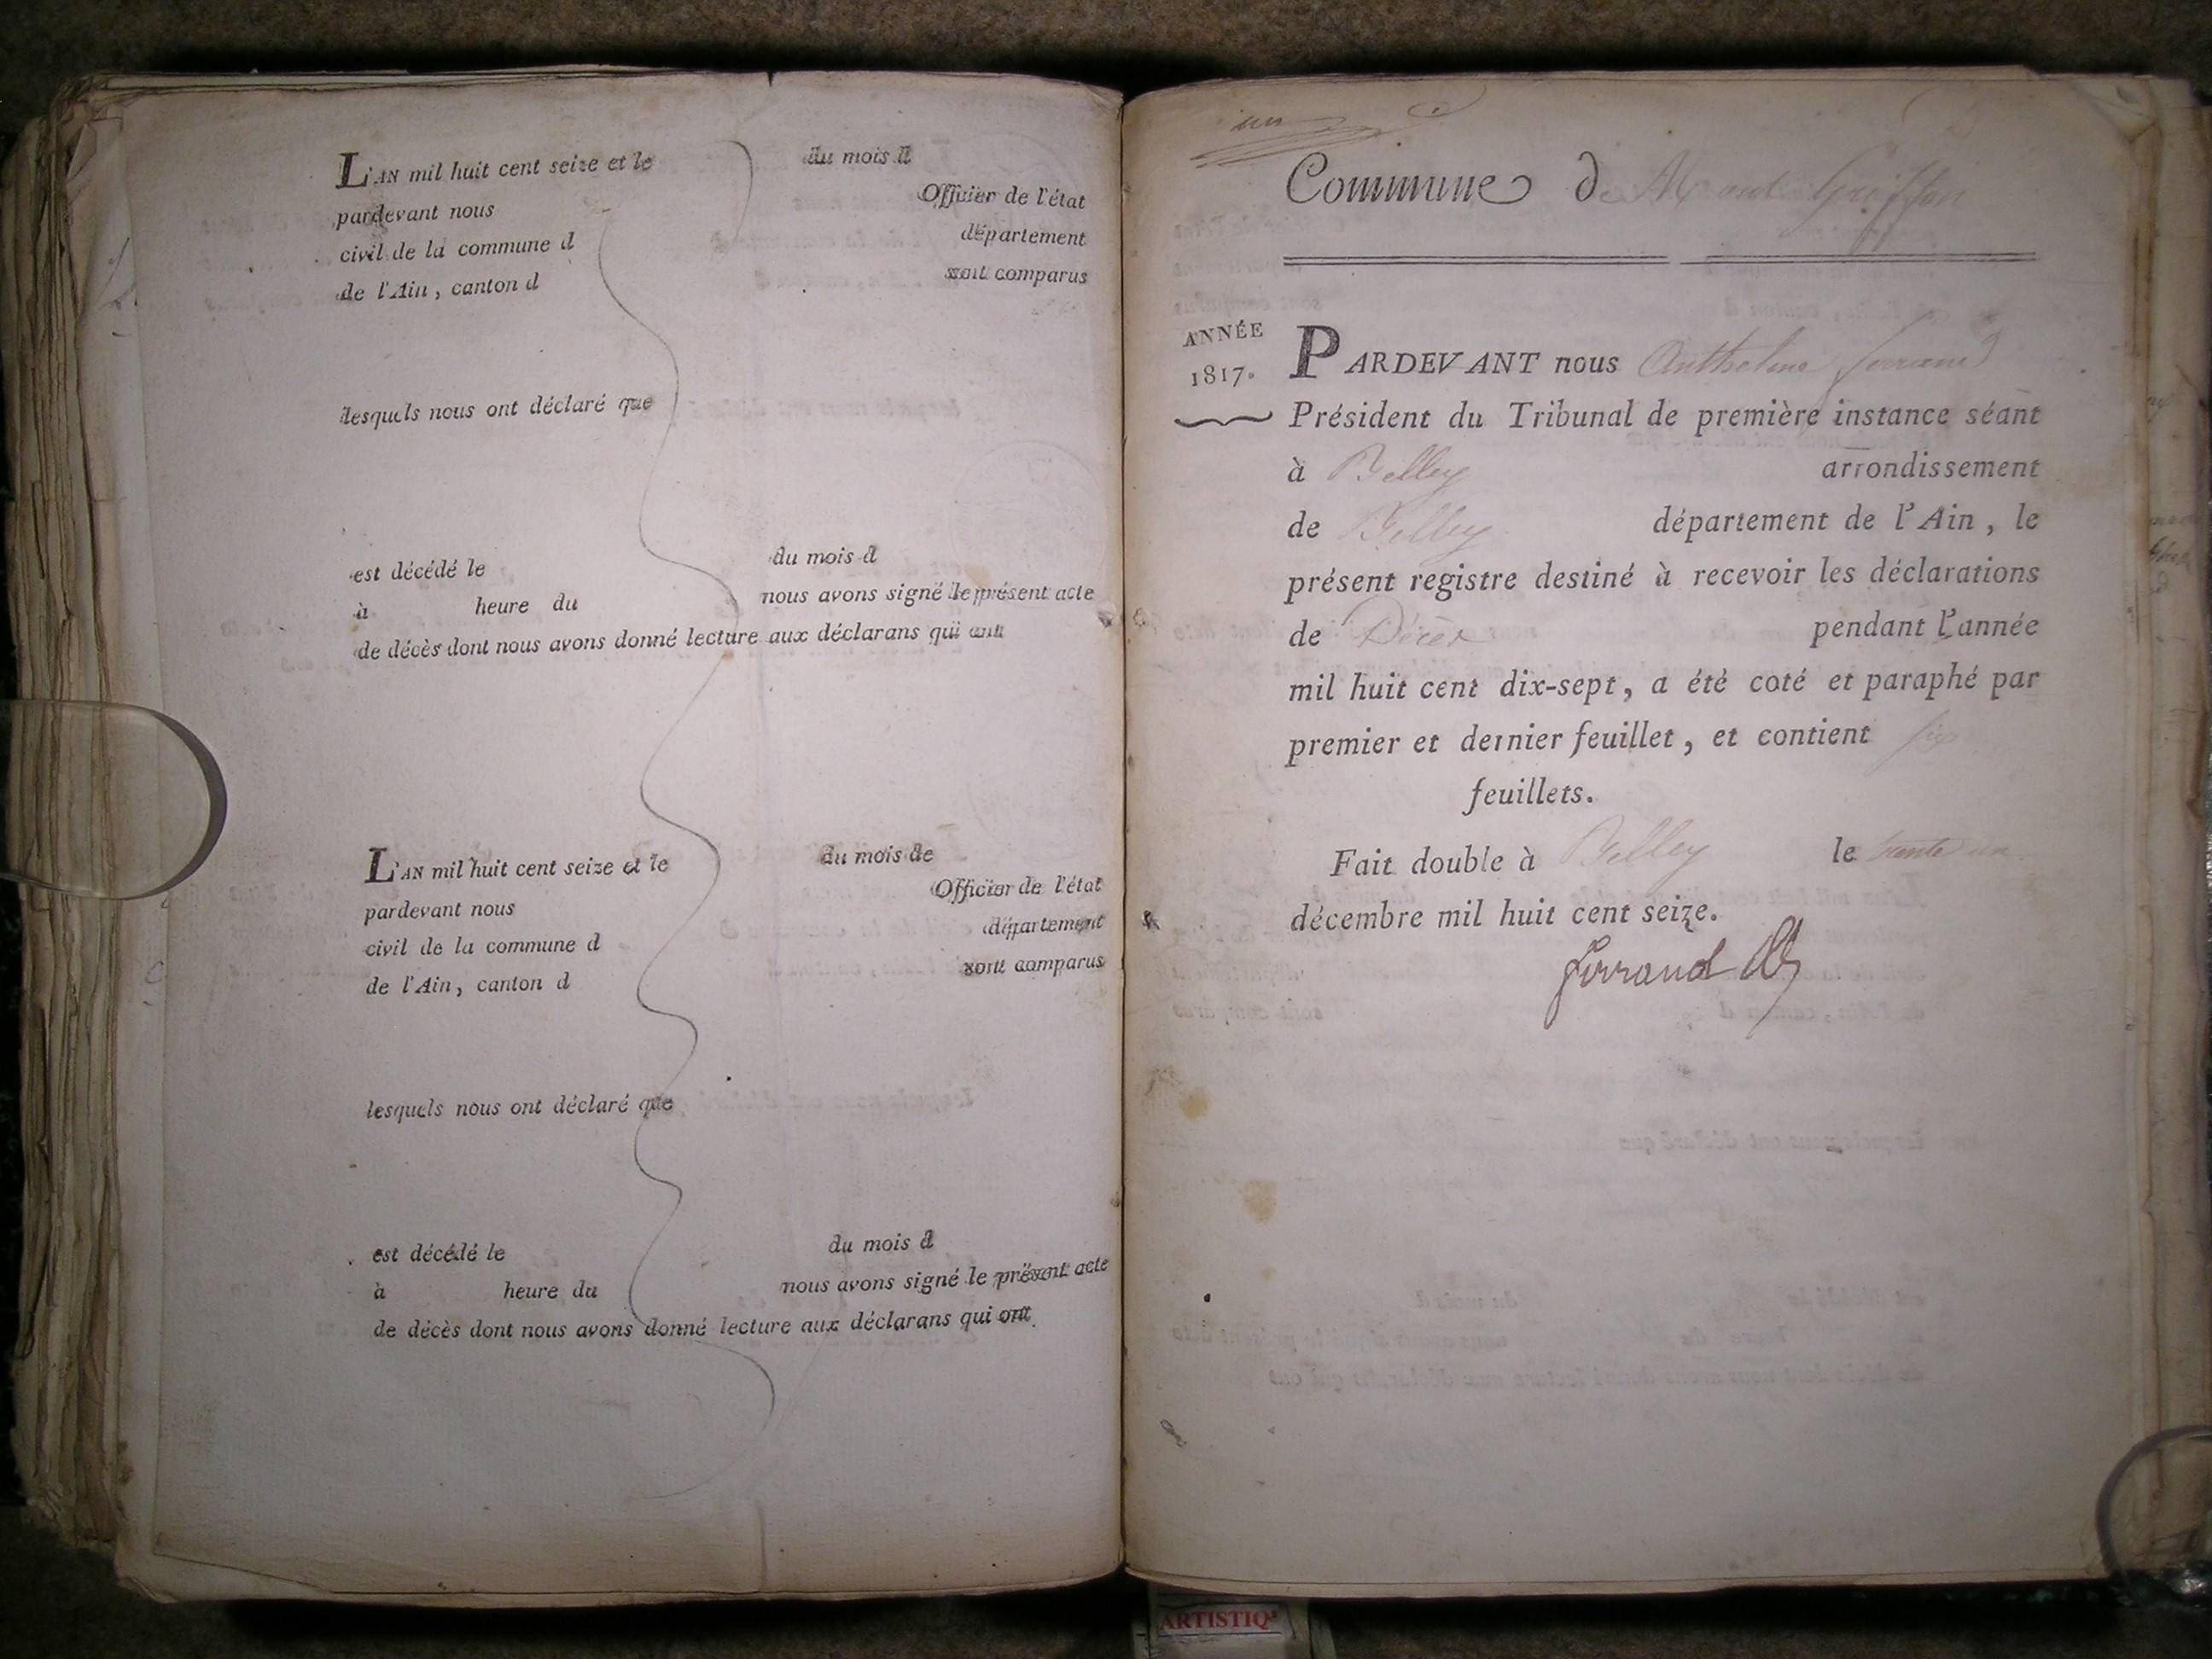 L'AN mil huit cent seize et le du mois d
pardevant nous Officier de l'état
civil de la commune d département
de l'Ain, canton d sont comparus
lesquels nous ont déclaré que
est décédé le du mois d
à heure du nous avons signé le présent acte
de décès dont nous avons donné lecture aux déclarans qui ont
L'AN mil huit cent seize et le du mois de
pardevant nous Officier de l'état
civil de la commune d département
de l'Ain, canton d sont comparus
lesquels nous ont déclaré que
est décédé le du mois d
à heure du nous avons signé le présent acte
de décès dont nous avons donné lecture aux déclarans qui ont
un
Commune de Griffon
ANNÉE
1817.
PARDEVANT nous Anthelme ferrand
Président du Tribunal de première instance séant
à Belley arrondissement
de Belley département de l'Ain, le
présent registre destiné à recevoir les déclarations
de Décès pendant l'année
mil huit cent dix-sept, a été coté et paraphé par
premier et dernier feuillet, et contient six
feuillets.
Fait double à Belley le trente un
décembre mil huit cent seize.
ferrand
ARTISTIQ